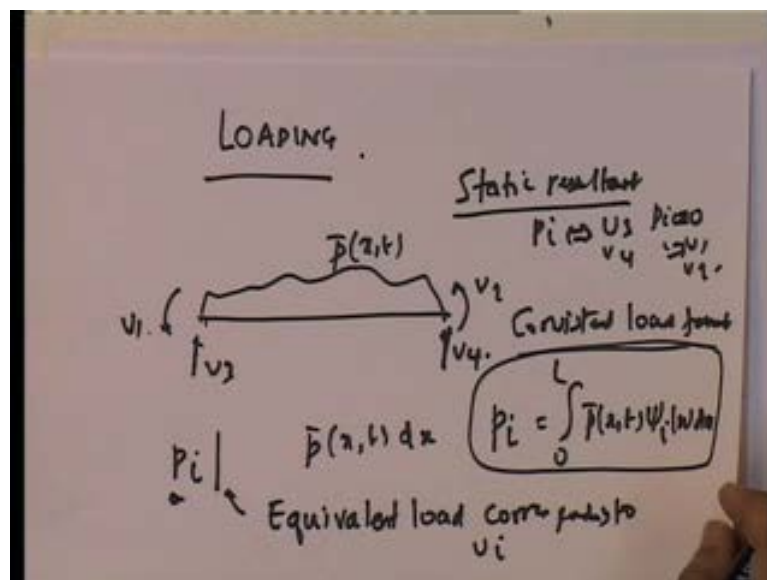 LOADING.
Static resultant
pi ⇔ v3 pi = 0
v4 ⇒ v1
v2.
p̄(x,t)
v1. v2
v3 v4.
Consistent load
pi = ∫₀ᴸ p̄(x,t) ψi(x) dx
pi p̄(x,t) dx
Equivalent load corresponds to
vi